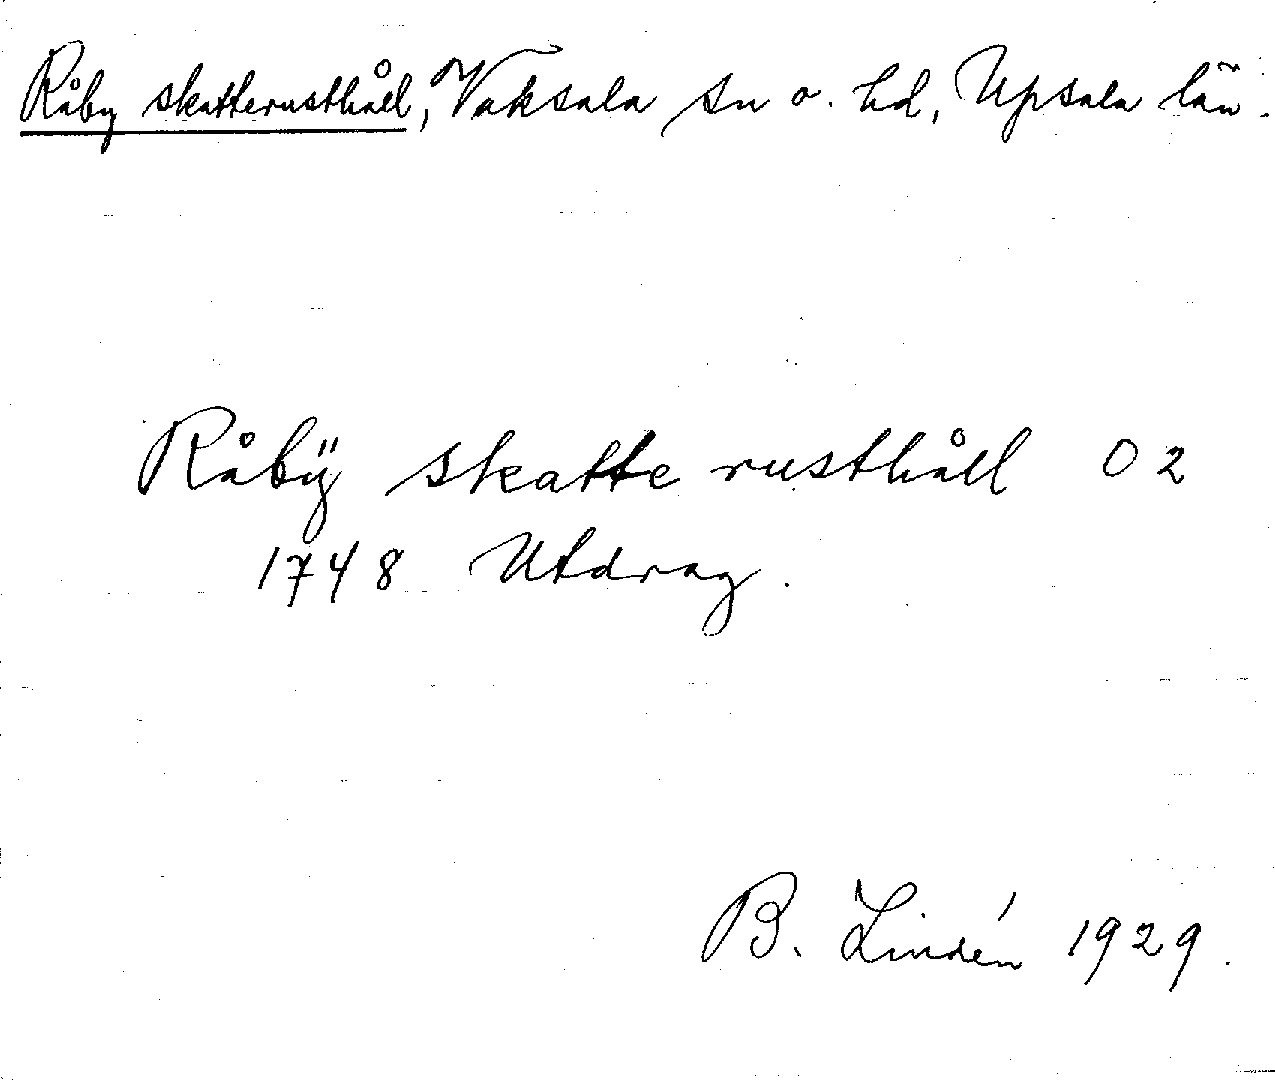 Råby skatterusthåll, Vaksala sn o. hd, Upsala län.
Råbÿ skatte rusthåll 02
1748 Utdrag.
B. Lindén 1929.